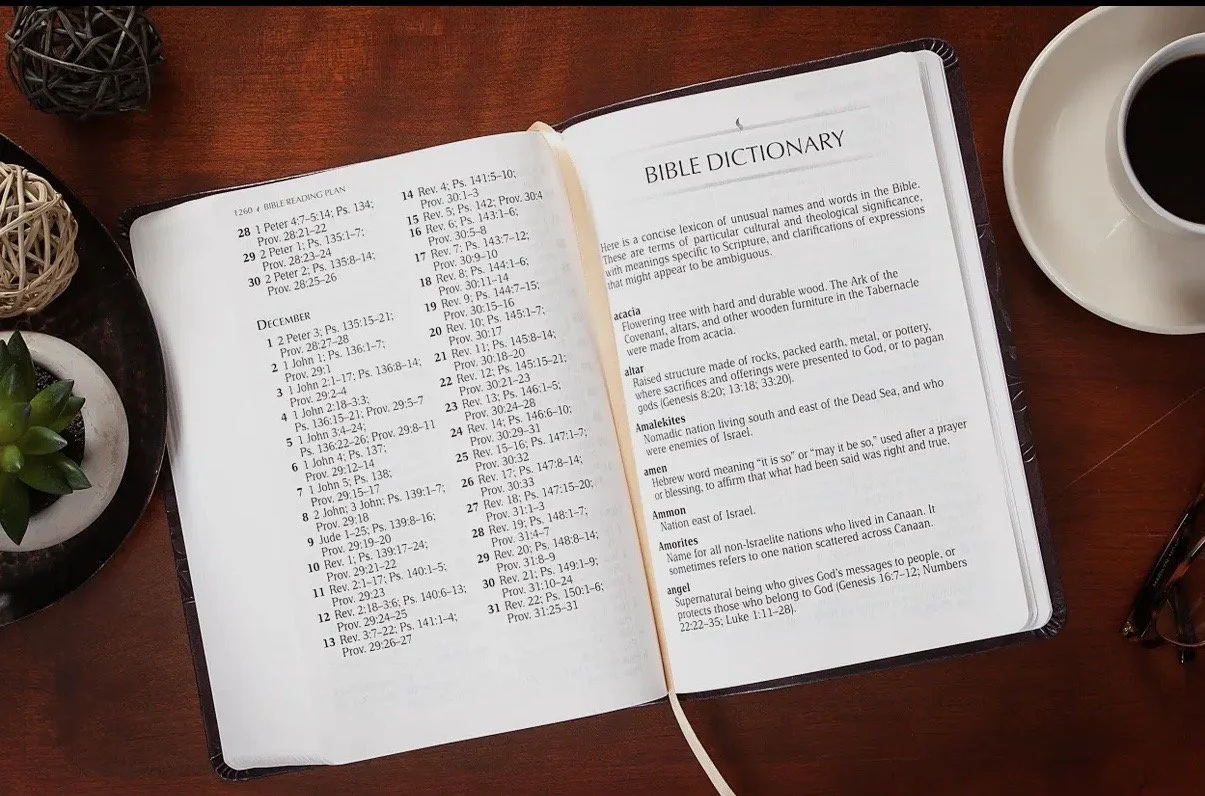 1260 BIBLE READING PLAN
28 1 Peter 4:7–5:14; Ps. 134;
Prov. 28:21–22
29 2 Peter 1; Ps. 135:1–7;
Prov. 28:23–24
30 2 Peter 2; Ps. 135:8–14;
Prov. 28:25–26
DECEMBER
1 2 Peter 3; Ps. 135:15–21;
Prov. 28:27–28
2 1 John 1; Ps. 136:1–7;
Prov. 29:1
3 1 John 2:1–17; Ps. 136:8–14;
Prov. 29:2–4
4 1 John 2:18–3:3;
Ps. 136:15–21; Prov. 29:5–7
5 1 John 3:4–24;
Ps. 136:22–26; Prov. 29:8–11
6 1 John 4; Ps. 137;
Prov. 29:12–14
7 1 John 5; Ps. 138;
Prov. 29:15–17
8 2 John; 3 John; Ps. 139:1–7;
Prov. 29:18
9 Jude 1–25; Ps. 139:8–16;
Prov. 29:19–20
10 Rev. 1; Ps. 139:17–24;
Prov. 29:21–22
11 Rev. 2:1–17; Ps. 140:1–5;
Prov. 29:23
12 Rev. 2:18–3:6; Ps. 140:6–13;
Prov. 29:24–25
13 Rev. 3:7–22; Ps. 141:1–4;
Prov. 29:26–27
14 Rev. 4; Ps. 141:5–10;
Prov. 30:1–3
15 Rev. 5; Ps. 142; Prov. 30:4
16 Rev. 6; Ps. 143:1–6;
Prov. 30:5–8
17 Rev. 7; Ps. 143:7–12;
Prov. 30:9–10
18 Rev. 8; Ps. 144:1–6;
Prov. 30:11–14
19 Rev. 9; Ps. 144:7–15;
Prov. 30:15–16
20 Rev. 10; Ps. 145:1–7;
Prov. 30:17
21 Rev. 11; Ps. 145:8–14;
Prov. 30:18–20
22 Rev. 12; Ps. 145:15–21;
Prov. 30:21–23
23 Rev. 13; Ps. 146:1–5;
Prov. 30:24–28
24 Rev. 14; Ps. 146:6–10;
Prov. 30:29–31
25 Rev. 15–16; Ps. 147:1–7;
Prov. 30:32
26 Rev. 17; Ps. 147:8–14;
Prov. 30:33
27 Rev. 18; Ps. 147:15–20;
Prov. 31:1–3
28 Rev. 19; Ps. 148:1–7;
Prov. 31:4–7
29 Rev. 20; Ps. 148:8–14;
Prov. 31:8–9
30 Rev. 21; Ps. 149:1–9;
Prov. 31:10–24
31 Rev. 22; Ps. 150:1–6;
Prov. 31:25–31
BIBLE DICTIONARY
Here is a concise lexicon of unusual names and words in the Bible.
These are terms of particular cultural and theological significance,
with meanings specific to Scripture, and clarifications of expressions
that might appear to be ambiguous.
acacia
Flowering tree with hard and durable wood. The Ark of the
Covenant, altars, and other wooden furniture in the Tabernacle
were made from acacia.
altar
Raised structure made of rocks, packed earth, metal, or pottery,
where sacrifices and offerings were presented to God, or to pagan
gods (Genesis 8:20; 13:18; 33:20).
Amalekites
Nomadic nation living south and east of the Dead Sea, and who
were enemies of Israel.
amen
Hebrew word meaning “it is so” or “may it be so,” used after a prayer
or blessing, to affirm that what had been said was right and true.
Ammon
Nation east of Israel.
Amorites
Name for all non-Israelite nations who lived in Canaan. It
sometimes refers to one nation scattered across Canaan.
angel
Supernatural being who gives God’s messages to people, or
protects those who belong to God (Genesis 16:7–12; Numbers
22:22–35; Luke 1:11–28).